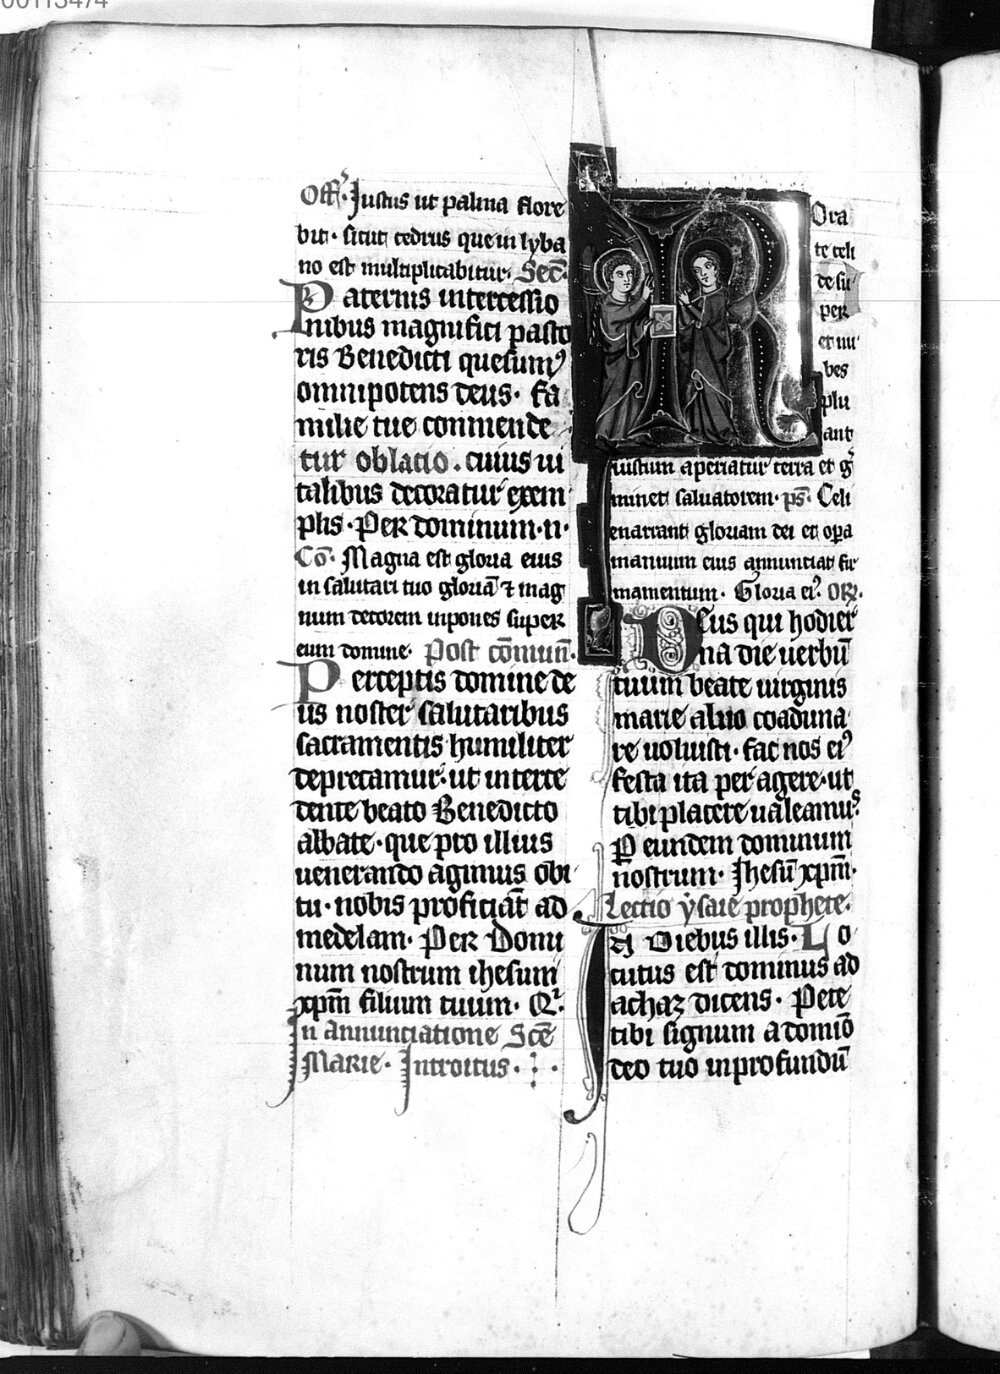 00113474
Off. Iustus ut palma flore
bit. sicut cedrus que in lyba
no est multiplicabitur. Sec.
Paternis intercessio
nibus magnifici pasto
ris Benedicti quesumꝰ
omnipotens deus. fa
milie tue commende
tur oblatio. cuius ui
talibus decoratur exem
plis. Per dominum. n.
Cō. Magna est gloria eius
in salutari tuo gloriā ⁊ mag
num decorem inpones super
eum domine. Post cōmun̄.
Perceptis domine de
us noster salutaribus
sacramentis humiliter
deprecamur. ut interce
dente beato Benedicto
abbate. que pro illius
uenerando agimus obi
tu. nobis proficiāt ad
medelam. Per Domi
num nostrum ihesum
xp̄m filium tuum. Q.
In annunciatione Scē
Marie. Introitus.
Rora
te celi
desu
per
et nu
bes
plu
ant
iustum aperiatur terra et g
minet saluatorem. ps. Celi
enarrant gloriam dei et opa
manuum eius annunciat fir
mamentum. Gloria ei. OR.
Deus qui hodier
na die uerbū
tuum beate uirginis
marie aluo coaduna
re uoluisti. fac nos eiꝰ
festa ita per agere. ut
tibi placere ualeamus.
P eundem dominum
nostrum. Ihesū xp̄m.
Lectio ysaie prophete.
In Diebus illis. Lo
cutus est dominus ad
achaz dicens. Pete
tibi signum a domīo
deo tuo in profundū